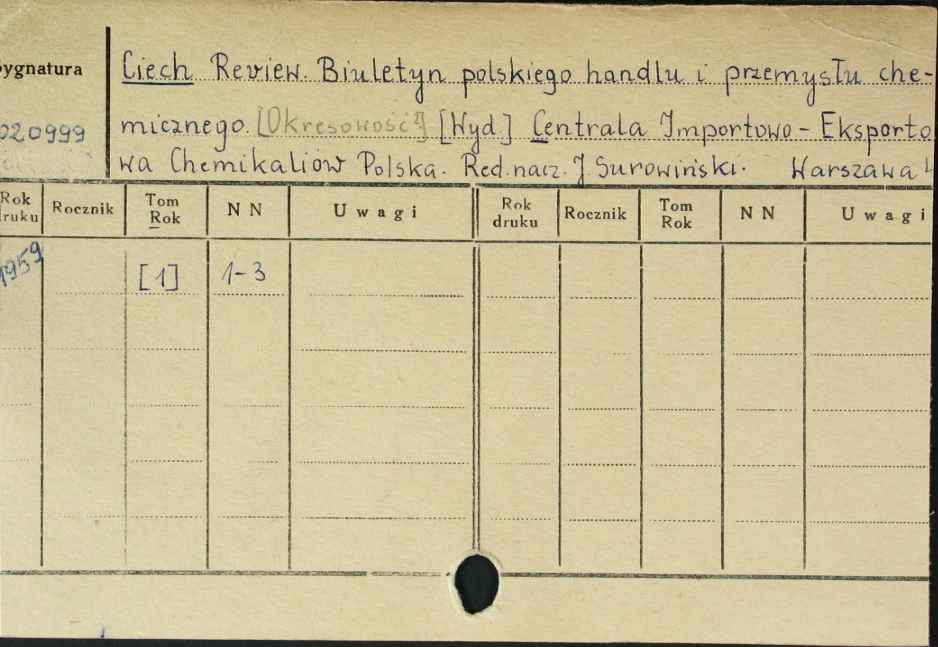 ygnatura
020999
Ciech Review. Biuletyn polskiego handlu i przemysłu che-
micznego. [Okresowość?] [Wyd.] Centrala Importowo-Eksporto
wa Chemikaliów Polska. Red. nacz. J. Surowiński. Warszawa
Rok druku Rocznik Tom Rok NN Uwagi Rok druku Rocznik Tom Rok NN Uwagi
1959 [1] 1-3